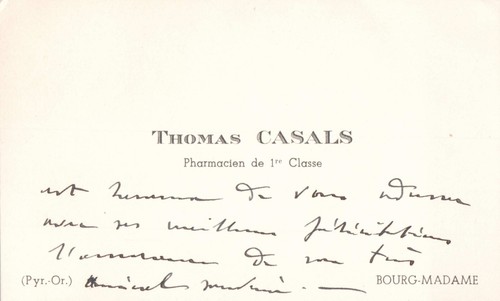 THOMAS CASALS
Pharmacien de 1re Classe
est heureux de vous adresser
avec ses meilleures félicitations
l'assurance de son très
(Pyr.-Or.) amical souvenir. — BOURG-MADAME